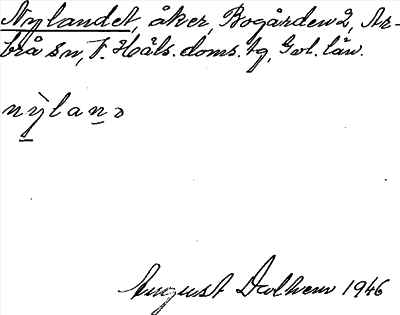 Nylandet, åker, Bogården 2, Ar-
brå sn, V. Häls. doms. tg, Gvl. län.
nỳlanə
August Dalhem 1946